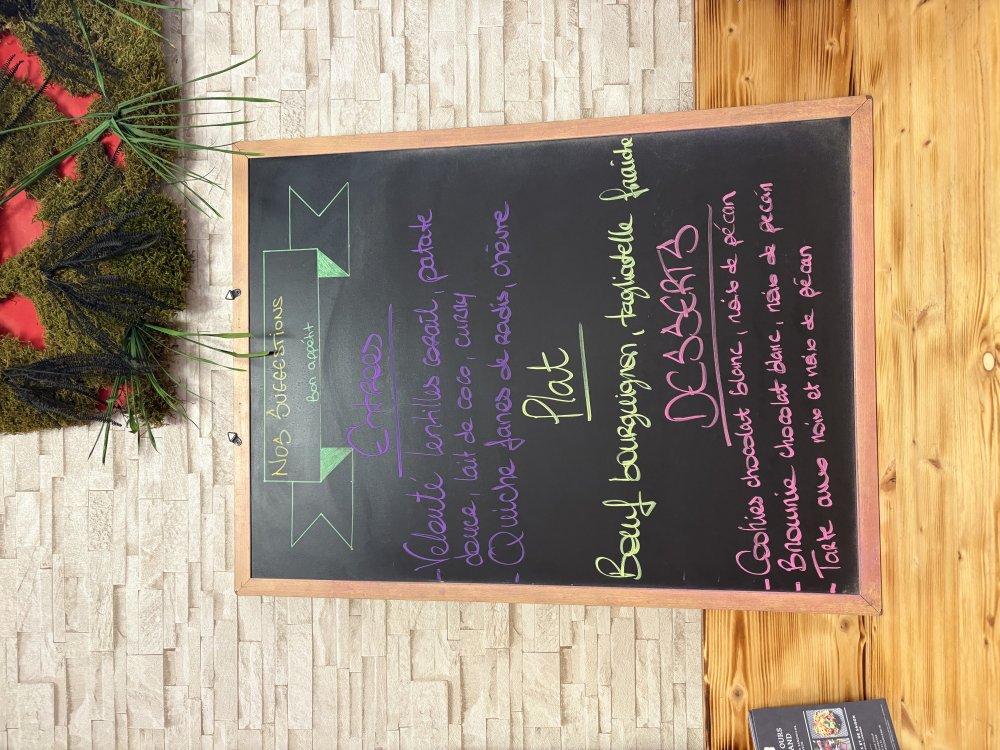 NOS SUGGESTIONS
Bon appétit
Entrées
- Velouté lentilles corail, patate
douce, lait de coco, curry
- Quiche fanes de radis, chèvre
Plat
Boeuf bourguignon, tagliatelle fraîche
DESSERTS
- Cookies chocolat blanc, noix de pécan
- Brownie chocolat blanc, noix de pecan
- Tarte aux noix et noix de pécan
OURS
AND